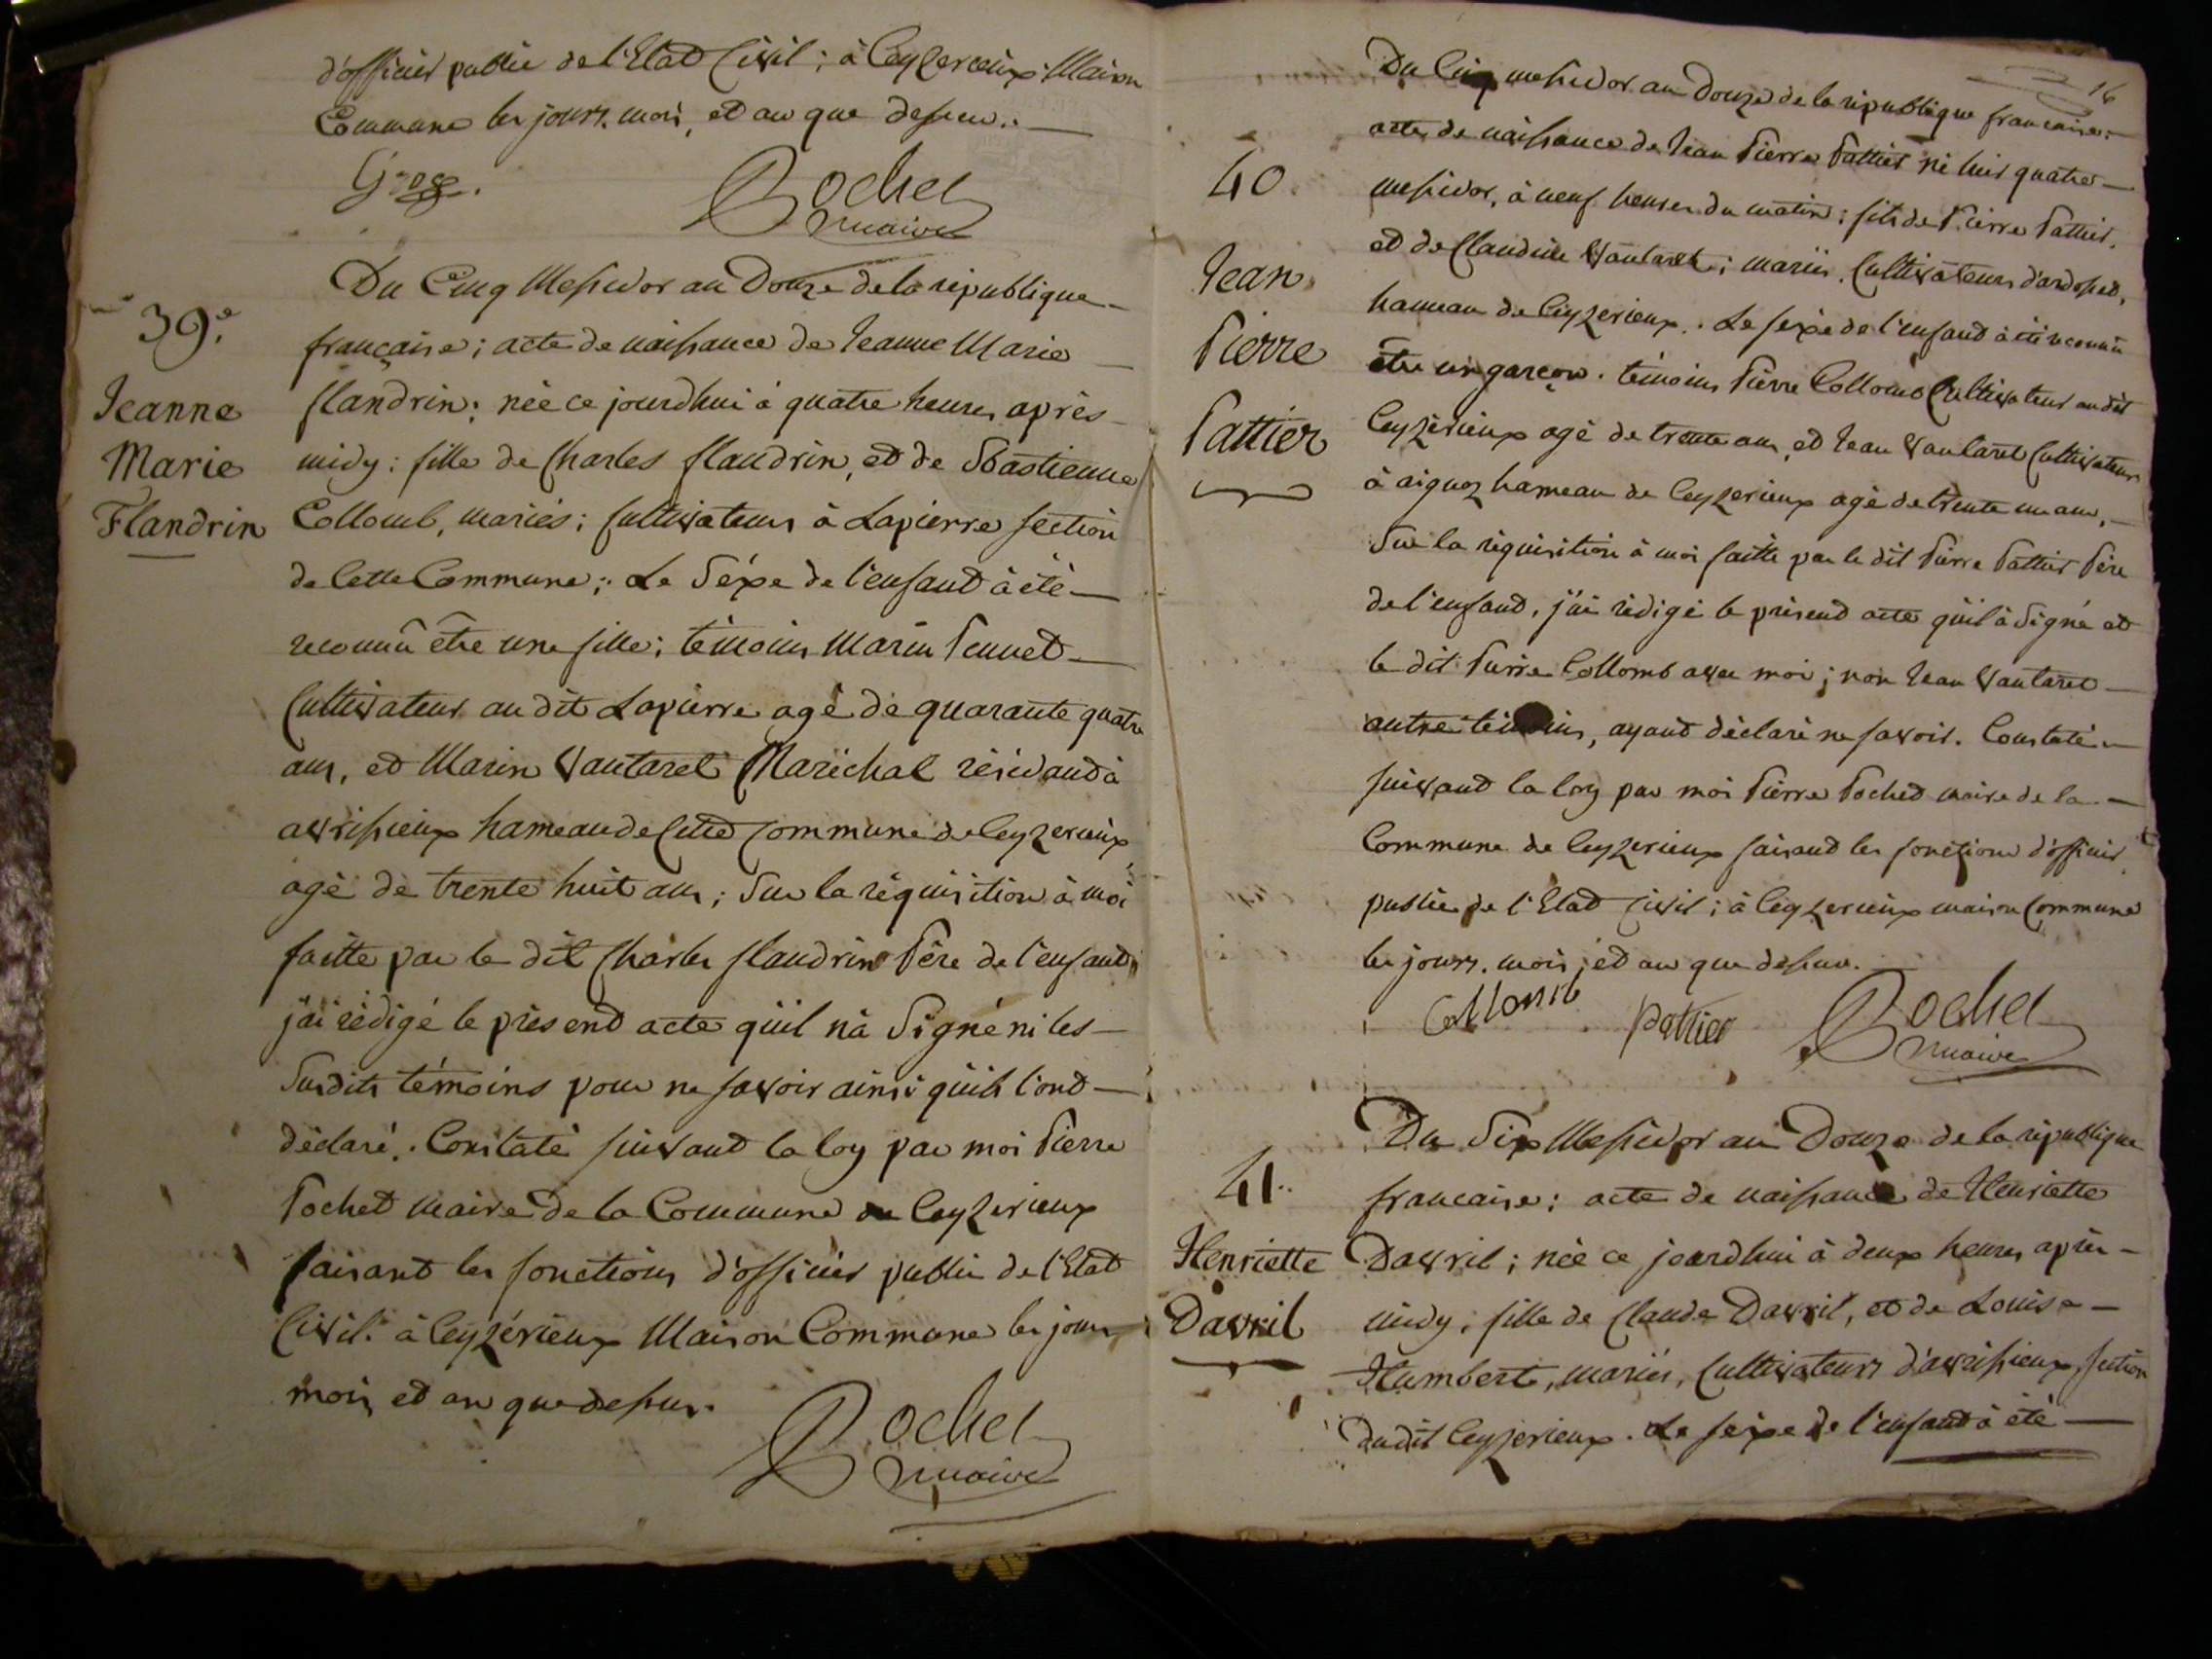 d'officier public de l'Etat Civil; à Ceyzerieux Maison
Commune les jours, mois, et an que dessus.
Gros.
Pochet
maire
39e.
Jeanne
Marie
Flandrin
Du Cinq Messidor an Douze de la république
française; acte de naissance de Jeanne Marie
flandrin; née ce jourdhui à quatre heures après
midy: fille de Charles flandrin, et de Sbastienne
Collomb, mariés; Cultivateurs à Lapierre section
de Cette Commune; Le Séxe de l'enfant à été
reconnû être une fille; témoins Marin Pennet
Cultivateur au dit Lapierre agé de quarante quatre
ans, et Marin Vautaret Maréchal résidant à
avrissieux hameau de Cette Commune de Ceyzerieux
agé de trente huit ans; Sur la réquisition à moi
faitte par le dit Charles flandrin Père de l'enfant,
j'ai rédigé le présent acte qu'il n'à Signé ni les
Susdits témoins pour ne savoir ainsi qu'ils l'ont
déclaré. Constaté suivant la loy par moi Pierre
Pochet maire de la Commune de Ceyzerieux
faisant les fonctions d'officier public de l'Etat
Civil. à Ceyzérieux Maison Commune les jours
mois et an que dessus.
Pochet
maire
16
40.
Jean
Pierre
Pattier
Du Cinq messidor an Douze de la république francaise:
acte de naissance de Jean Pierre Pattier né hier quatre
messidor, à neuf heures du matin; fils de Pierre Pattier,
et de Claudine Vautaret; mariés, Cultivateurs d'ardosset,
hameau de Ceyzerieux. Le sexe de l'enfant à été reconnû
être un garçon. témoins Pierre Collomb Cultivateur au dit
Ceyzérieux agé de trente ans, et Jean Vautaret Cultivateur
à aignoz hameau de Ceyzerieux agé de trente un ans,
Sur la réquisition à moi faitte par le dit Pierre Pattier Père
de l'enfant, j'ai rédigé le présent acte qu'il à Signé et
le dit Pierre Collomb avec moi; non Jean Vautaret
autre témoins, ayant déclaré ne savoir. Constaté
suivant la loy par moi Pierre Pochet maire de la
Commune de Ceyzerieux faisant les fonctions d'officier
public de l'Etat Civil; à Ceyzerieux maison Commune
les jours, mois, et an que dessus.
Collomb
Pattier
Pochet
maire
41.
Henriette
Davril
Du Six Messidor an Douze de la république
francaise: acte de naissance de Henriette
Davril; née ce jourdhui à deux heures après
midy; fille de Claude Davril, et de Louise
Humbert, mariés, Cultivateurs d'avrissieux, section
dudit Ceyzerieux. Le sexe de l'enfant à été